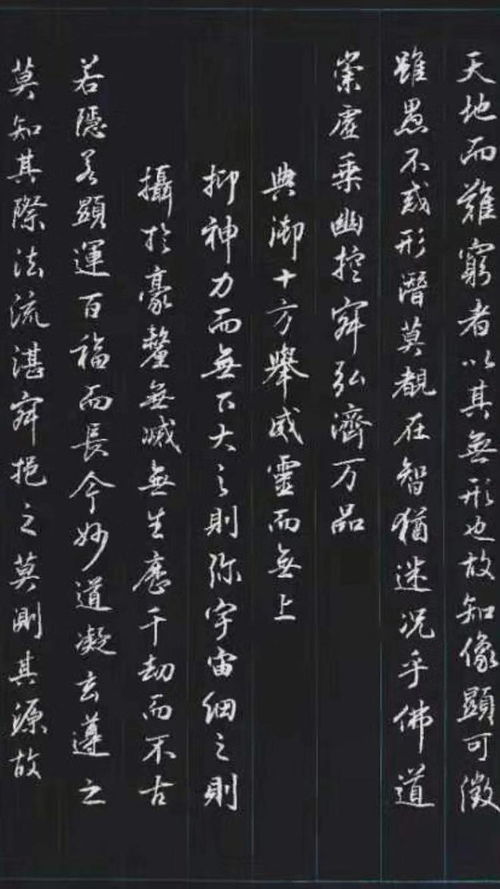 天地而難窮者以其無形也故知像顯可徵
雖愚不或形潛莫覩在智猶迷况乎佛道
崇虛乘幽控寂弘濟万品
典御十方舉威靈而無上
抑神力而無下大之則弥宇宙細之則
攝於豪釐無滅無生歷千劫而不古
若隱若顯運百福而長今妙道凝玄遵之
莫知其際法流湛寂挹之莫測其源故